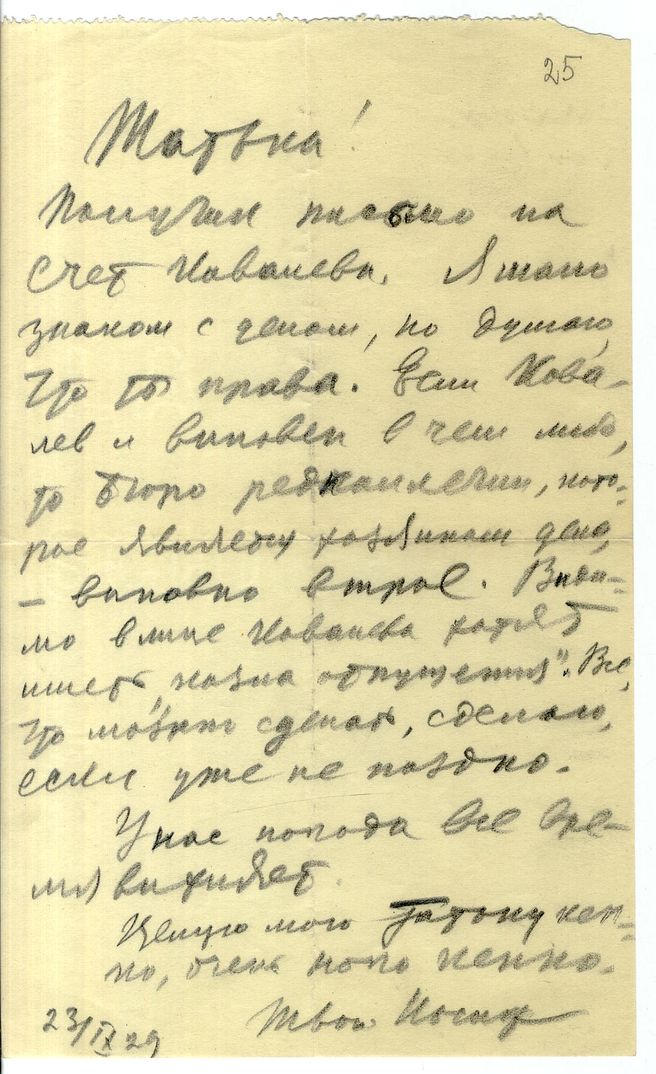 25
Татька!
Получил письмо на
счет Ковалева. Я мало
знаком с делом, но думаю,
что ты права. Если Кова-
лев и виновен в чем либо,
то бюро редколлегии, кото-
рое является хозяином дела,
– виновно втрое. Види-
мо в лице Ковалева хотят
иметь „козла отпущения". Все,
что можно сделать, сделаю,
если уже не поздно.
У нас погода все вре-
мя вихляет.
Целую мою Татьку кеп-
ко, очень ного кепко.
Твой Иосиф
23/IX 29